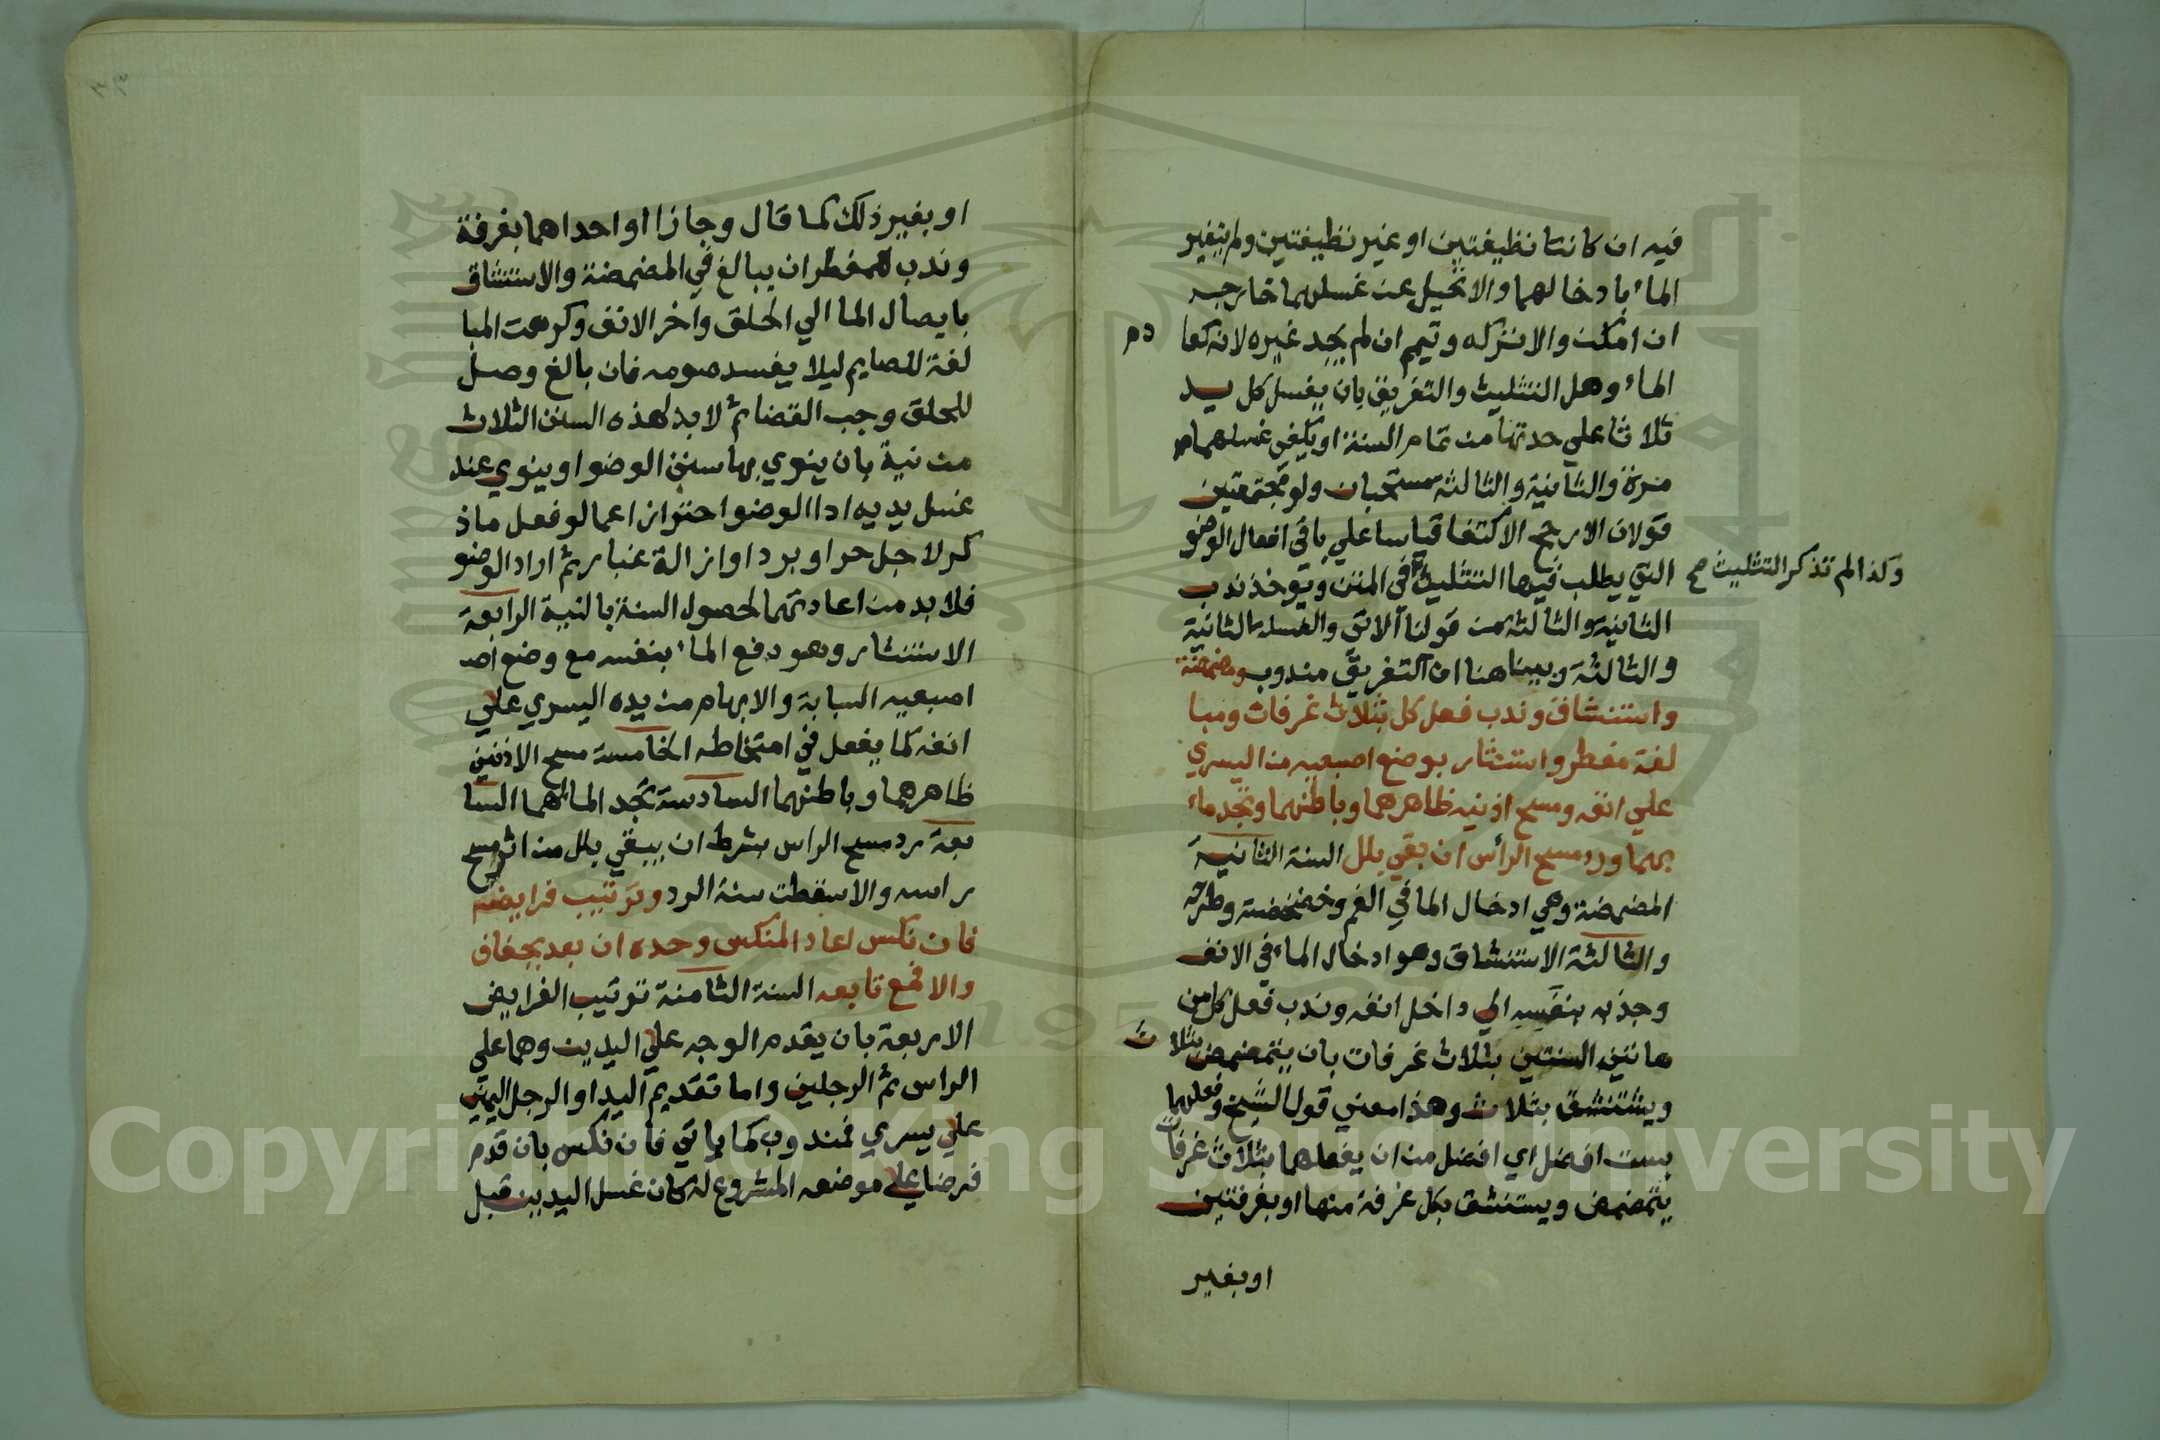 فيه ان كانتا نظيفتين او غير نظيفتين ولم يتغير
الماء بادخالهما والا تحيل عن غسلهما خارجه
ان امكن والا تركه وتيمم ان لم يجد غيره لانه كعادم
الماء وهل التثليث والتفريق بان يغسل كل يد
ثلاثا علي حدتها من تمام السنة او يكفي غسلهما
مرة والثانية والثالثة مستحبان ولو مجتمعتين
قولان الارجح الاكتفا قياسا علي باقي افعال الوضو
التي يطلب فيها التثليث في المتن ويوخذ ندب
وكذا لم تذكر التثليث صح
الثانية والثالثة من قولنا الاتي والغسلة الثانية
والثالثة وبينا هنا ان التفريق مندوب ومضمضة
واستنشاق وندب فعل كل بثلاث غرفات ومبا
لغة مفطر واستنثار بوضع اصبعيه من اليسري
علي انفه ومسح اذنيه ظاهرهما وباطنهما وتجد ماء
بهما ورد مسح الرأس ان بقي بلل السنة الثانية
المضمضة وهي ادخال الما في الفم وخضخضته وطرحه
والثالثة الاستنشاق وهو ادخال الماء في الانف
وجذبه بنفسه الي داخل انفه وندب فعل كل من
هاتين السنتين بثلاث غرفات بان يتمضمض بثلاث
ويستنشق بثلاث وهذا معني قول الشيخ وفعلهما
بست افضل اي افضل من ان يفعلهما بثلاث غرفات
يتمضمض ويستنشق بكل غرفة منها او بغرفتين
او بغير
او بغير ذلك كما قال وجازا او احداهما بغرفة
وندب لمفطر ان يبالغ في المضمضة والاستنشاق
بايصال الما الي الحلق واخر الانف وكرهت المبا
لغة للصايم ليلا يفسد صومه فان بالغ وصل
للحلق وجب القضا ثم لا بد لهذه السنن الثلاث
من نية بان ينوي بها سنن الوضو او ينوي عند
غسل يديه ادا الوضو احترازا عما لو فعل ما ذ
كر لاجل حر او برد او ازالة غبار ثم اراد الوضو
فلا بد من اعادتهما لحصول السنة بالنية الرابعة
الاستنثار وهو دفع الماء بنفسه مع وضع اصـ
اصبعيه السبابة والابهام من يده اليسري علي
انفه كما يفعل في امتخاطه الخامسة مسح الاذنين
ظاهرهما وباطنهما السادسة تجد الما لهما السا
بعة رد مسح الراس بشرط ان يبقي بلل من اثر مسح
راسه والا سقطت سنة الرد وترتيب فرايضه
فان نكس اعاد المنكس وحده ان بعد بجفاف
والا فمع تابعه السنة الثامنة ترتيب الفرايض
الاربعة بان يقدم الوجه علي اليدين وهما علي
الراس ثم الرجلين واما تقديم اليد او الرجل اليمني
علي يسري فمندوب كما ياتي فان نكس بان قدم
فرضا علي موضعه المشروع له كان غسل اليدين قبل
Copyright © King Saud University